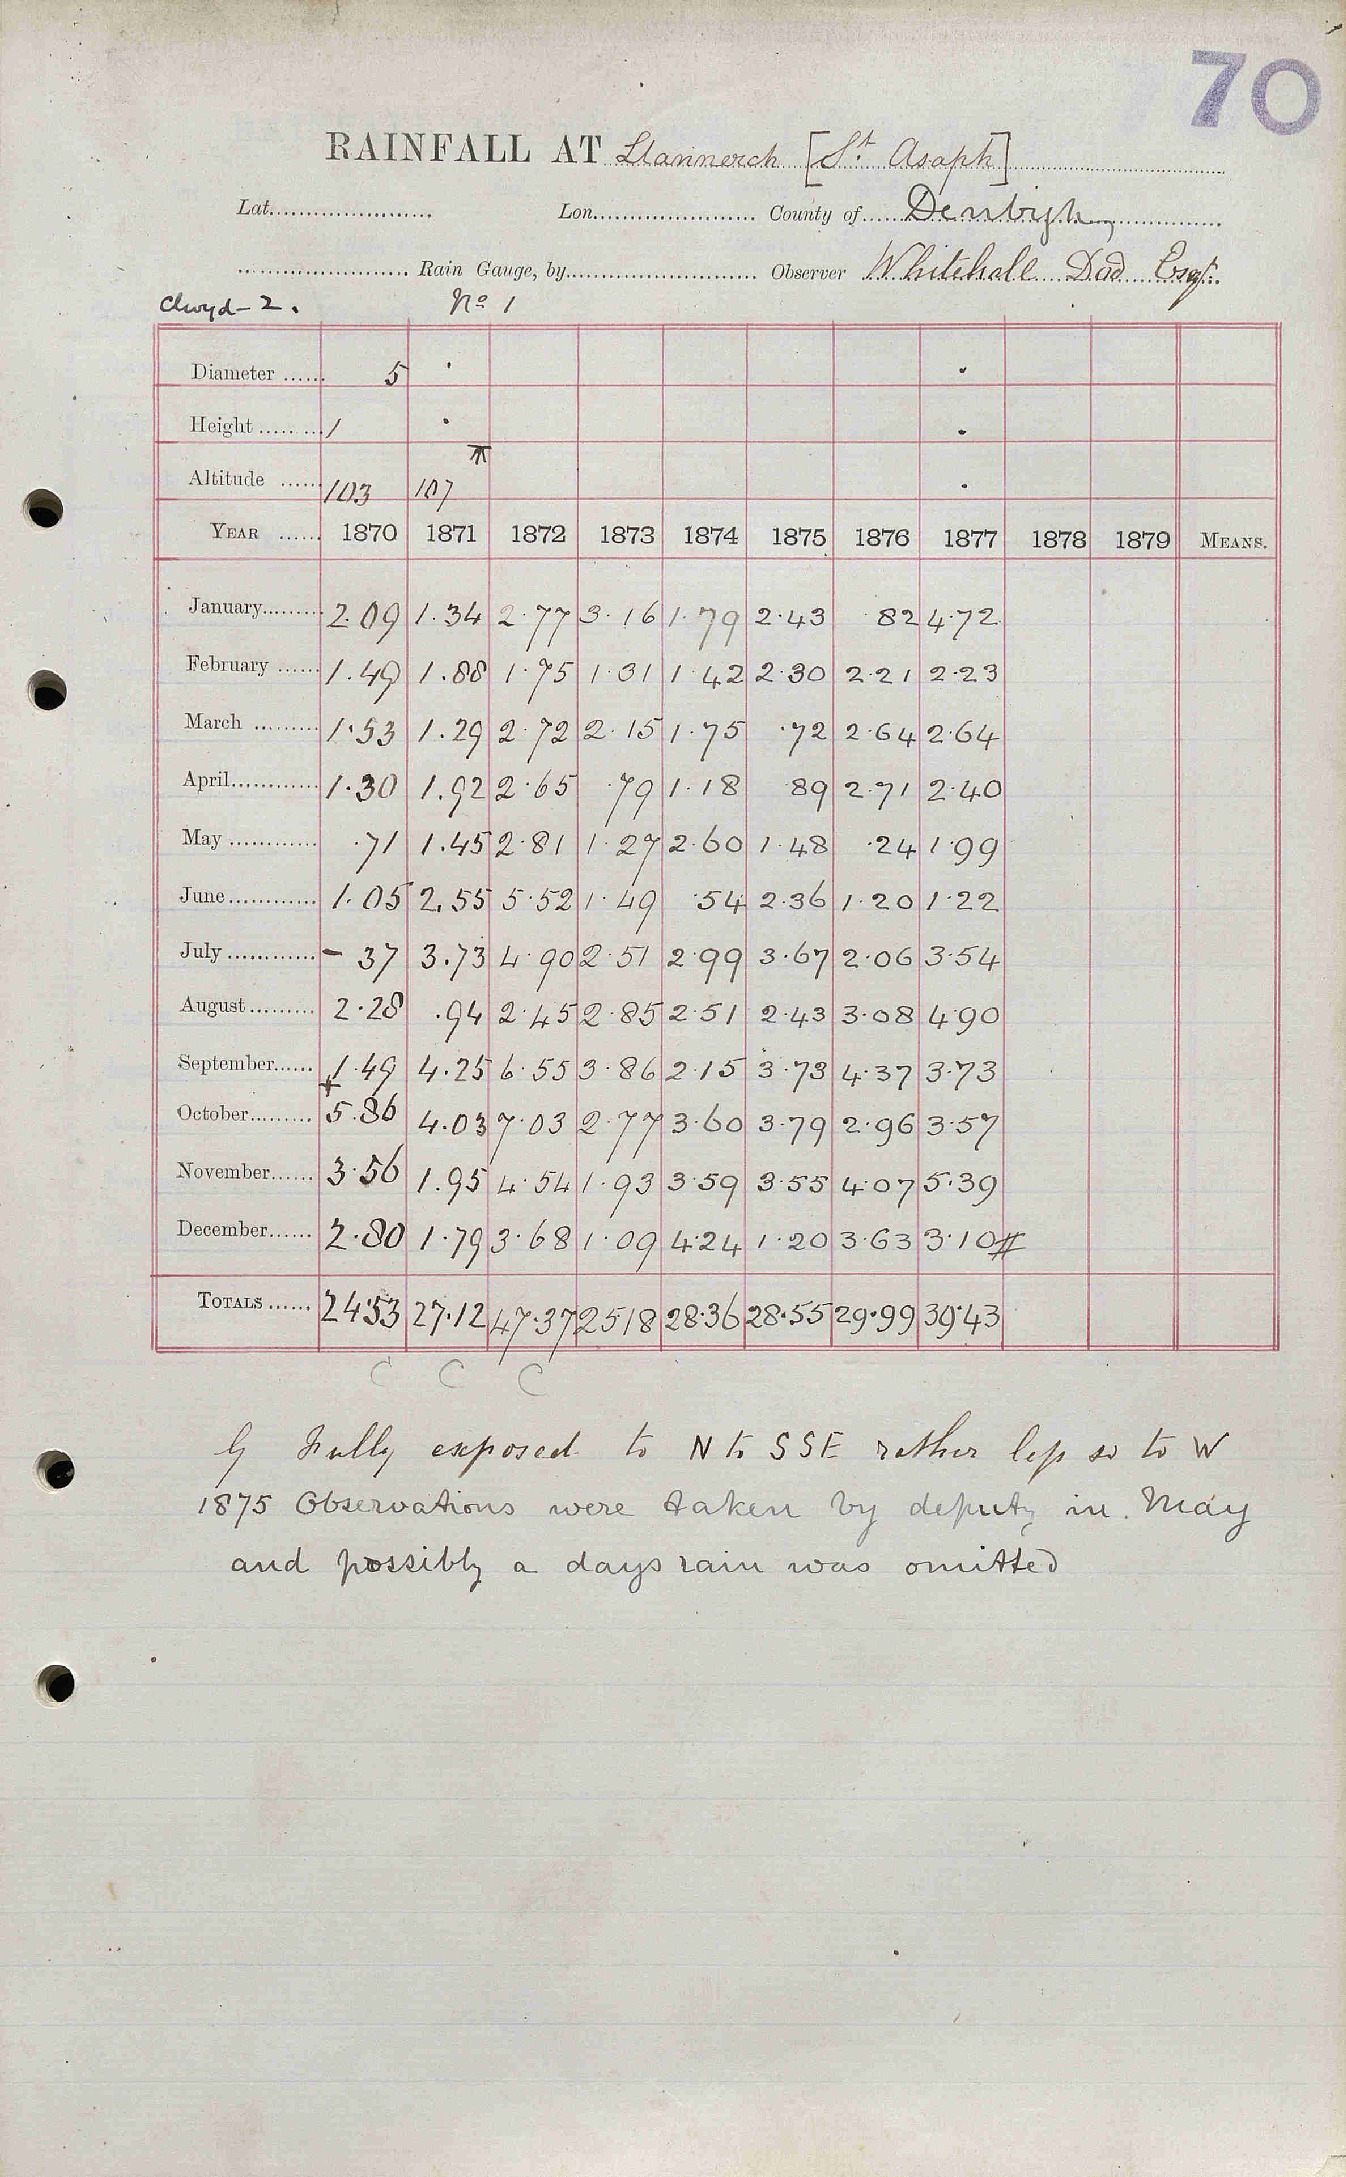 70
RAINFALL AT Llannerch [St. Asaph]
Lat. Lon. County of Denbigh
Rain Gauge, by Observer Whitehall Dod Esqr.
Clwyd-2. No 1
Diameter 5 . .
Height 1 . .
Altitude 103 107 .
YEAR 1870 1871 1872 1873 1874 1875 1876 1877 1878 1879 MEANS.
January 2.09 1.34 2.77 3.16 1.79 2.43 82 4.72
February 1.49 1.88 1.75 1.31 1.42 2.30 2.21 2.23
March 1.53 1.29 2.72 2.15 1.75 .72 2.64 2.64
April 1.30 1.92 2.65 .79 1.18 89 2.71 2.40
May .71 1.45 2.81 1.27 2.60 1.48 .24 1.99
June 1.05 2.55 5.52 1.49 .54 2.36 1.20 1.22
July - 37 3.73 4.90 2.51 2.99 3.67 2.06 3.54
August 2.28 .94 2.45 2.85 2.51 2.43 3.08 4.90
September 1.49 4.25 6.55 3.86 2.15 3.73 4.37 3.73
October + 5.86 4.03 7.03 2.77 3.60 3.79 2.96 3.57
November 3.56 1.95 4.54 1.93 3.59 3.55 4.07 5.39
December 2.80 1.79 3.68 1.09 4.24 1.20 3.63 3.10
TOTALS 24.53 27.12 47.37 25 18 28.36 28.55 29.99 39.43
C C C
G Fully exposed to N to SSE rather less so to W
1875 Observations were taken by deputy in May
and possibly a days rain was omitted